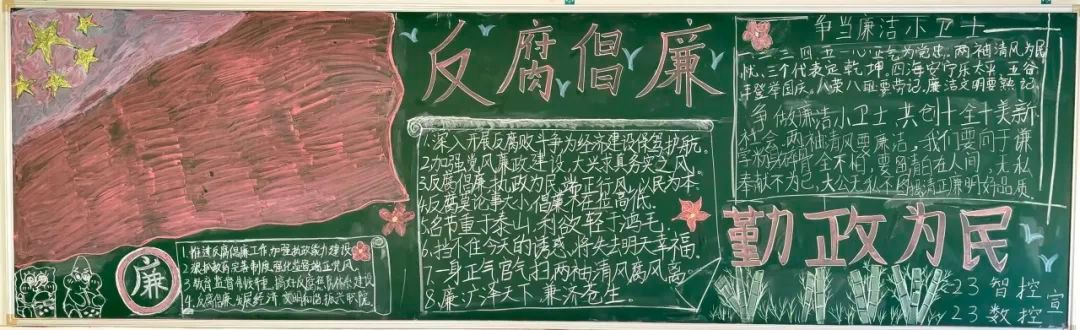 反腐倡廉
1.深入开展反腐败斗争为经济建设保驾护航。
2.加强党风廉政建设,大兴求真务实之风。
3.反腐倡廉执政为民,端正行风,人民为本。
4.反腐莫论事大小,倡廉不在位高低。
5.名节重于泰山,利欲轻于鸿毛。
6.挡不住今天的诱惑,将失去明天幸福。
7.一身正气官气扫,两袖清风腐风离。
8.廉洁泽天下,兼济苍生。
廉
1.推进反腐倡廉工作,加强执政能力建设
4.反腐倡廉,发展经济
争当廉洁小卫士
一二三四五 一心 为党忠,两袖清风为民
忧,三个代表定乾坤,四海安宁乐太平,五谷
丰登举国庆。八荣八耻要劳记,廉洁文明要熟记
争做廉洁小卫士 共创十全十美新
社会,两袖清风要廉洁,我们要向于谦
全不怕,要留清白在人间,无私
奉献不为己,大公无私不图 清正廉明好品质
勤政为民
23智控
23数控
宣